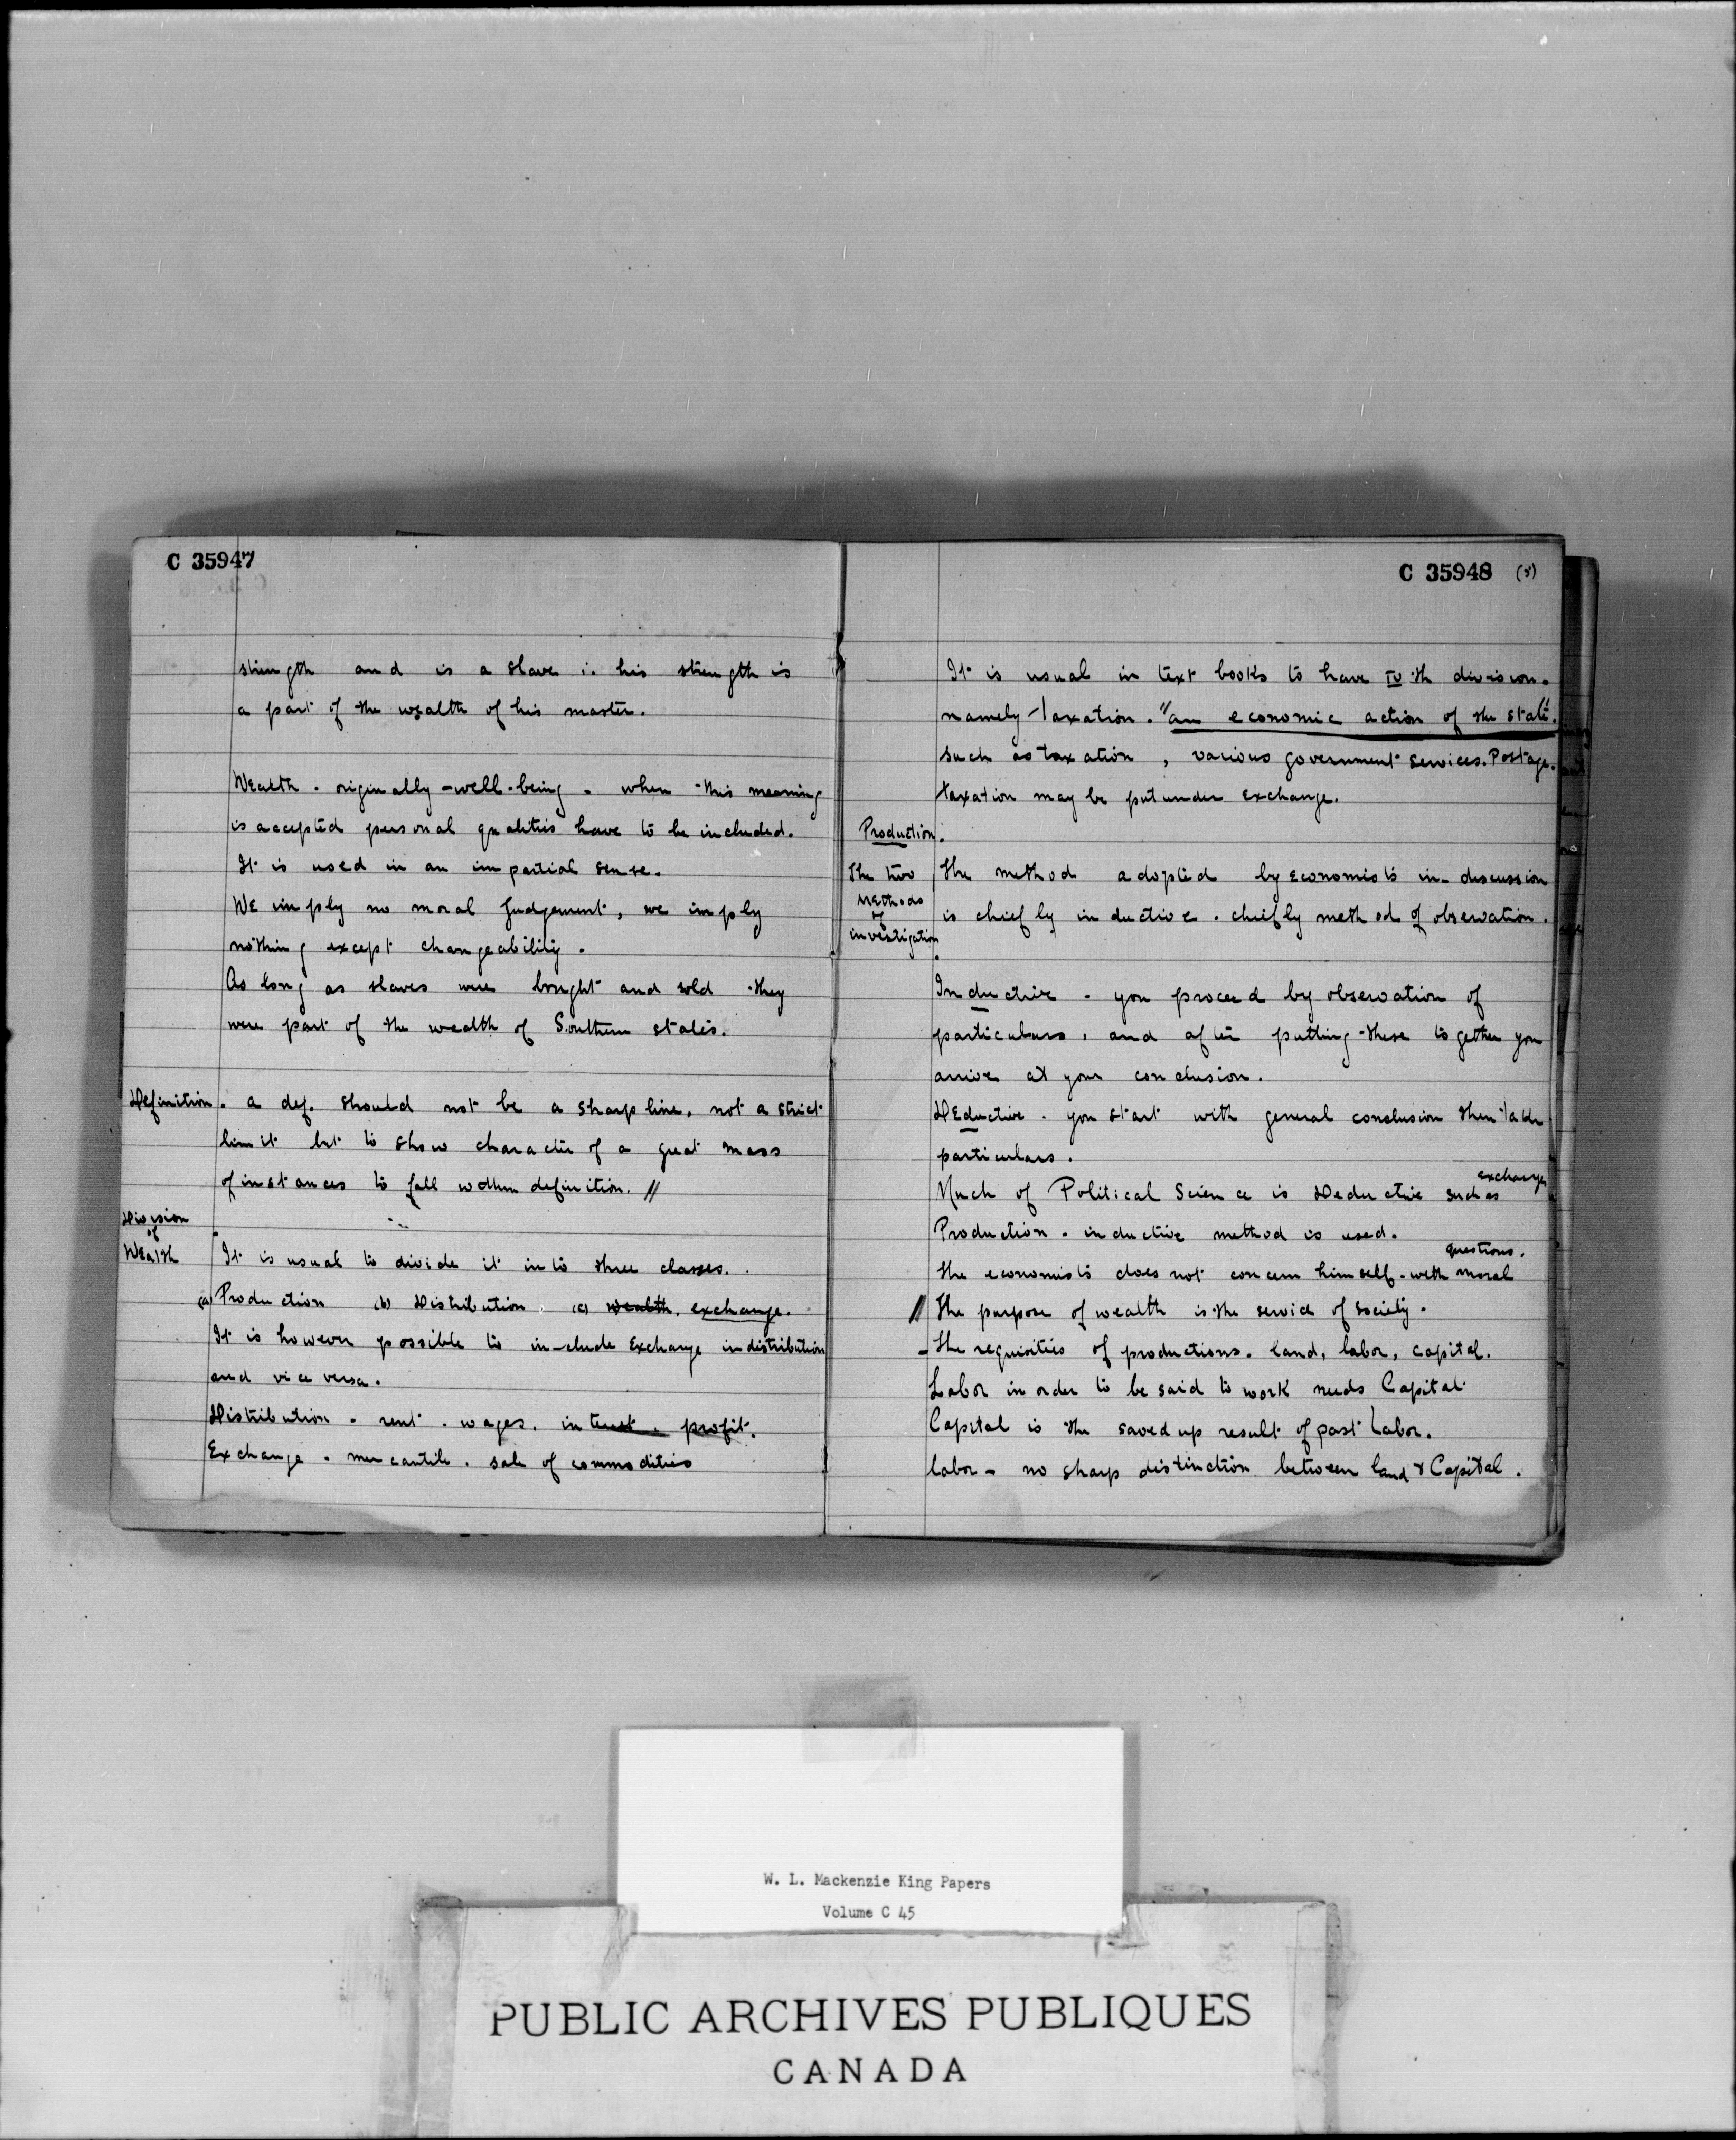 C 35947
strength and is a slave ∴ his strength is
a part of the wealth of his master.
Wealth - originally - well-being - when this meaning
is accepted personal qualities have to be included.
It is used in an impartial sense.
We imply no moral Judgement, we imply
nothing except changeability.
As long as slaves were bought and sold they
were part of the wealth of Southern states.
Definition. a def. should not be a sharp line, not a strict
limit but to show character of a great mass
of instances to fall within definition. //
Division
of
Wealth
It is usual to divide it into three classes.
(a) Production (b) Distribution. (c) wealth. exchange.
It is however possible to in-clude Exchange in distribution
and vice versa.
Distribution - rent - wages. interest. profit.
Exchange - mercantile. sale of commodities
C 35948 (5)
It is usual in text books to have IV th division.
namely Taxation. "an economic action of the state."
such as taxation, various government services. Postage.
taxation may be put under exchange.
Production.
The two
Methods
of
investigation.
The method adopted by economists in discussion
is chiefly inductive. chiefly method of observation.
Inductive - you proceed by observation of
particulars, and after putting these together you
arrive at your conclusion.
Deductive - you start with general conclusion then take
particulars.
exchange
Much of Political Science is Deductive such as
Production - inductive method is used.
questions.
The economists does not concern himself with moral
// The purpose of wealth is the service of society.
- The requisities of productions. land, labor, capital.
Labor in order to be said to work needs Capital
Capital is the saved up result of past Labor.
labor - no sharp distinction between land & Capital.
W. L. Mackenzie King Papers
Volume C 45
PUBLIC ARCHIVES PUBLIQUES
CANADA